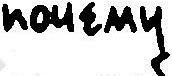 почему